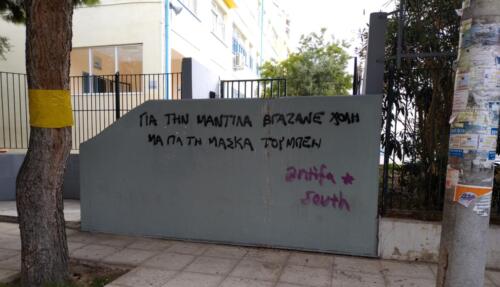 ΓΙΑ ΤΗΝ ΜΑΝΤΙΛΑ ΒΓΑΖΑΝΕ ΧΟΛΗ
ΜΑ ΓΙΑ ΤΗ ΜΑΣΚΑ ΤΟΥΜΠΕΝ
antifa
south